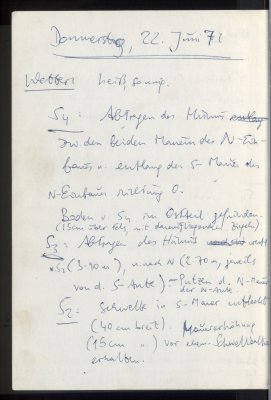 Donnerstag, 22. Juni 71
Wetter: heiß sonnig.
S4: Abtragen des Humus
zw. den beiden Mauern des N-Ein-
baus u. entlang der S-Mauer des
N-Einbaus richtung O.
Boden v. S4 im Ostteil gefunden.
(15cm über Fels, mit daraufliegenden Ziegeln)
S3: Abtragen des Humus nach
S2 (3·90 m), u. nach N (2·70 m, jeweils
von d. S-Ante) – Putzen d. N-Mauer
der N-Ante.
S2: Schwelle in S-Mauer entdeckt
(40 cm breit). Mauererhöhung
(15cm ") vor
erhalten.